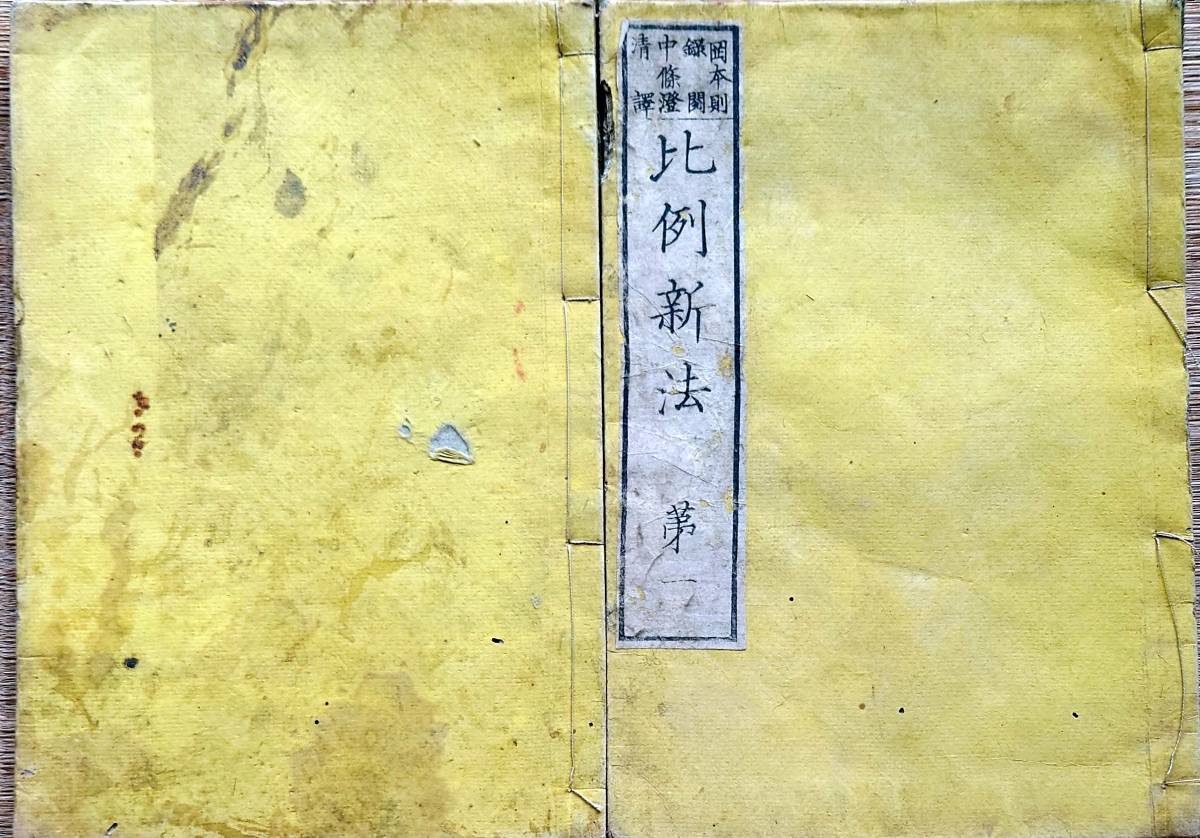 岡本則
録閲
中條澄
清譯
比例新法 第一